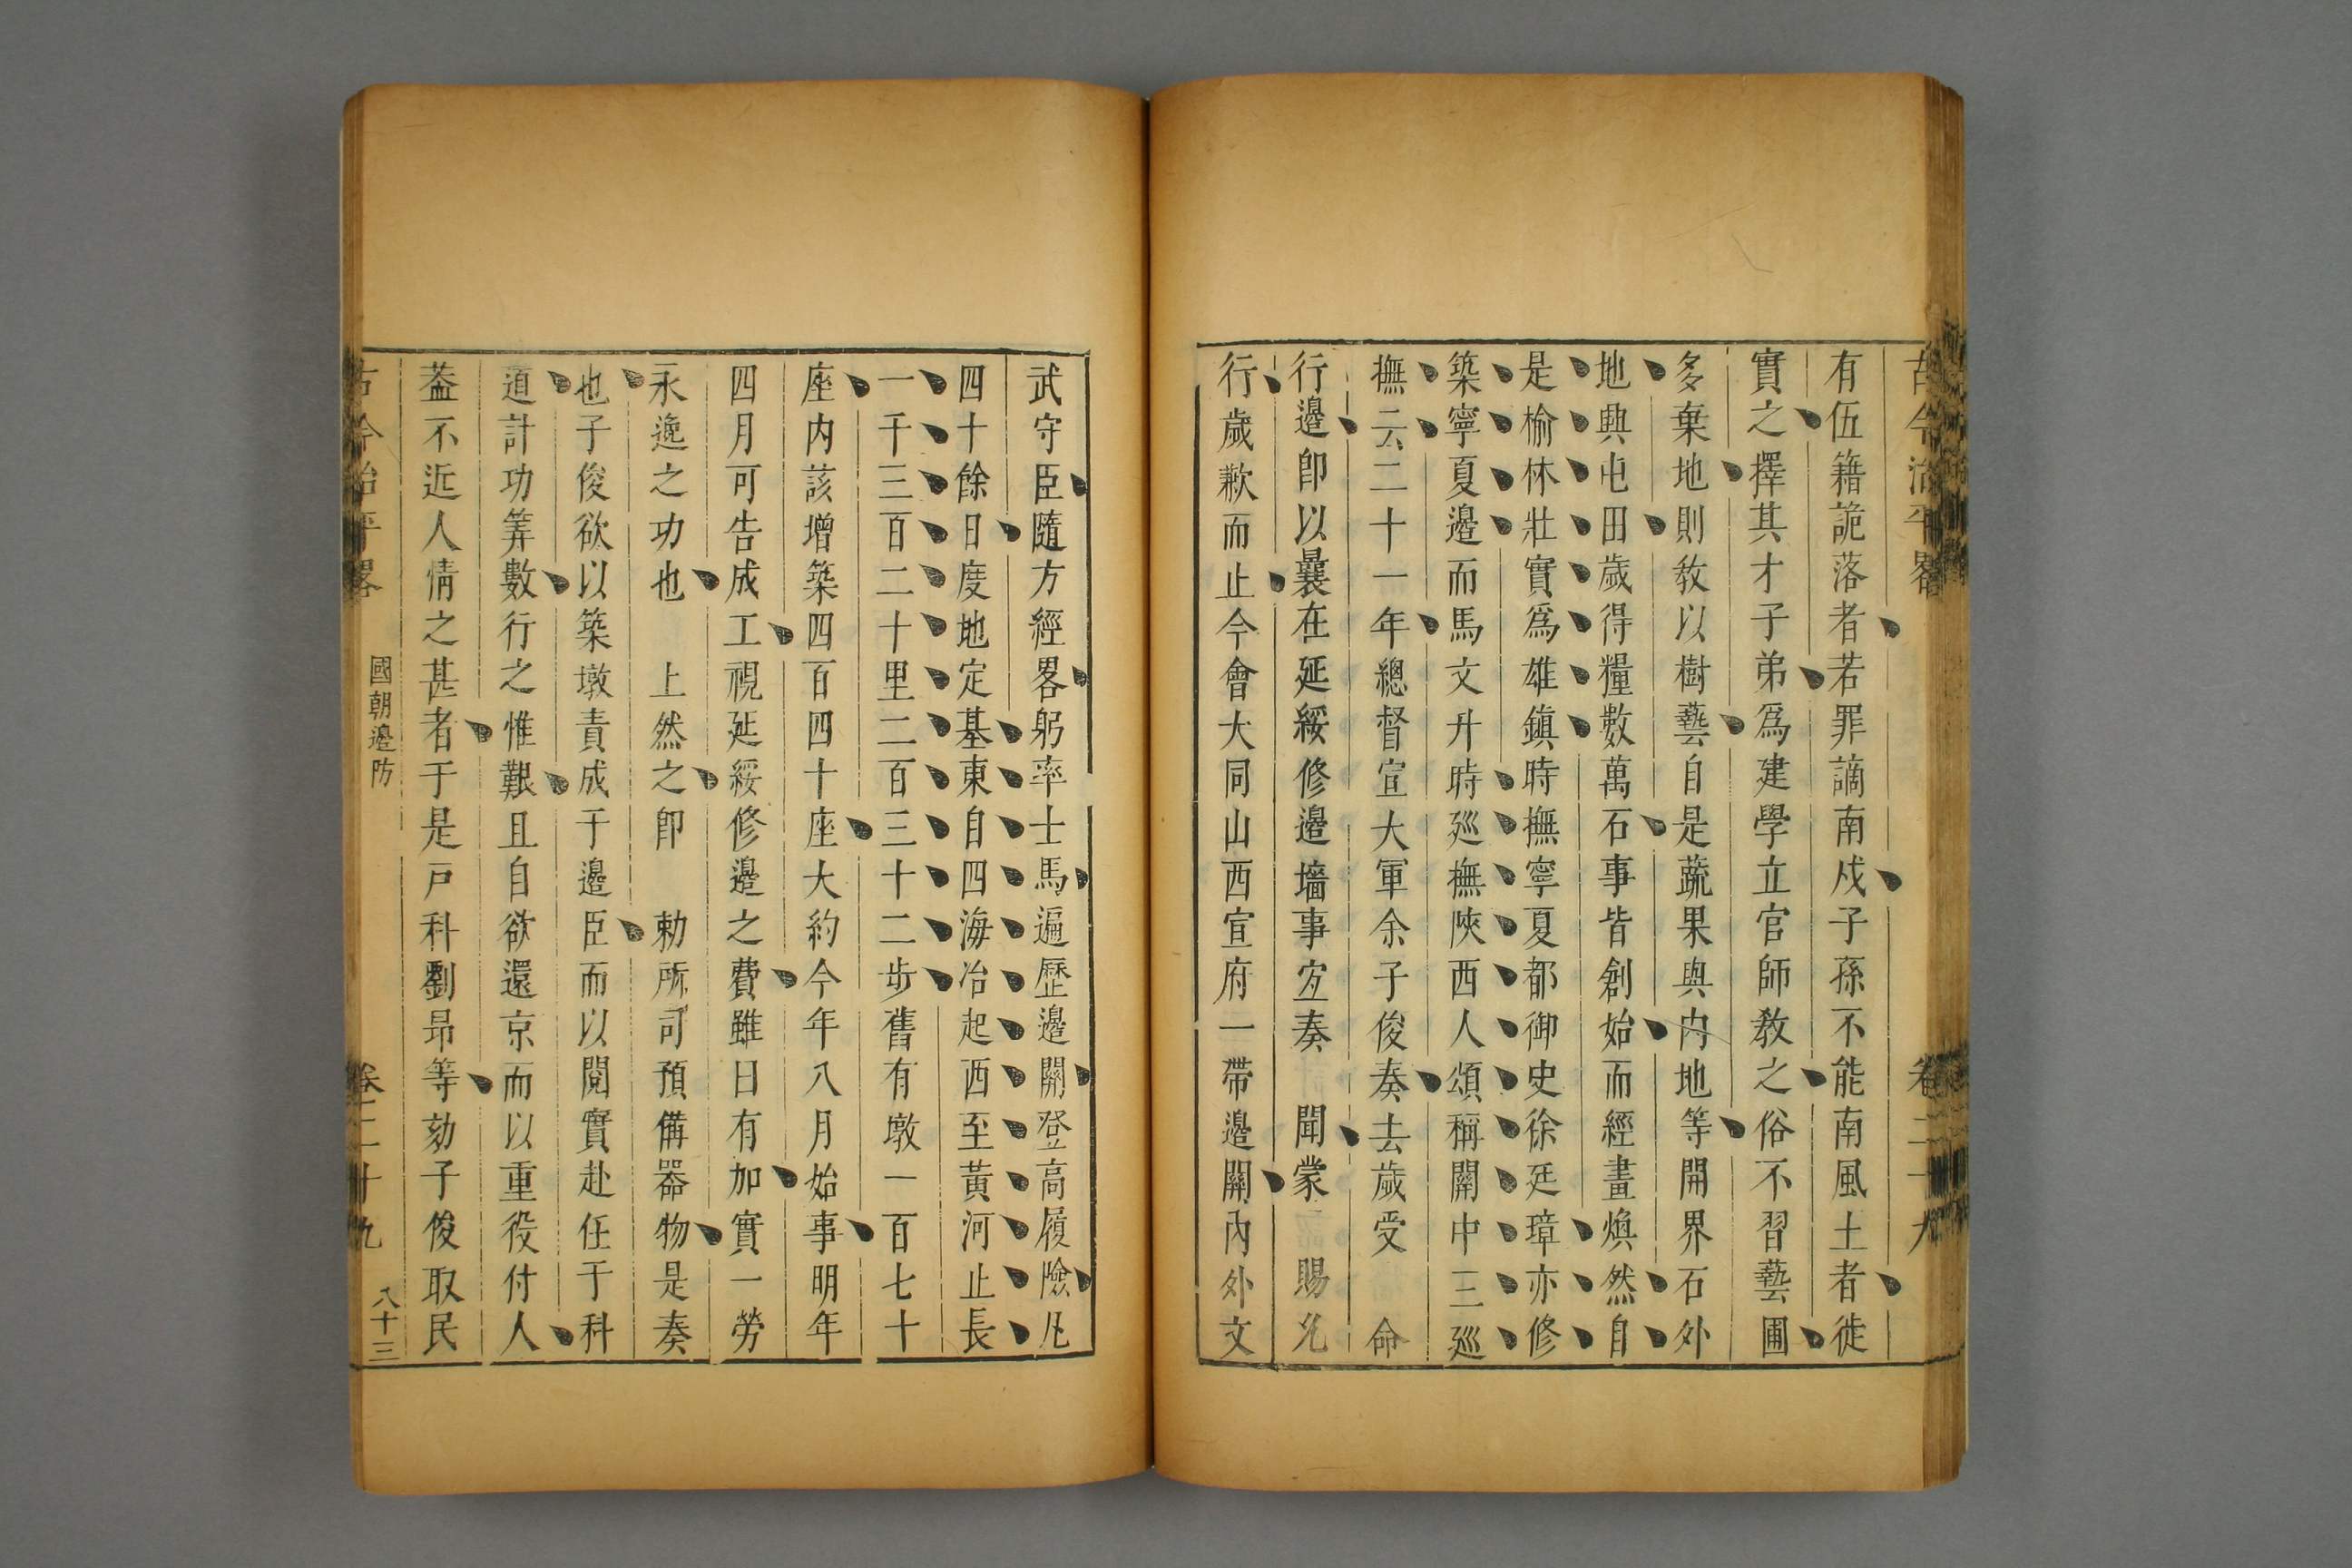 古今治平畧 卷二十九
有伍籍詭落者若罪謫南戍子孫不能南風土者徙
實之擇其才子弟爲建學立官師教之俗不習藝圃
多棄地則教以樹藝自是蔬果與内地等開界石外
地興屯田歲得糧數萬石事皆創始而經畫煥然自
是榆林壯實爲雄鎮時撫寧夏都御史徐廷璋亦修
築寧夏邊而馬文升時廵撫陝西人頌稱關中三廵
撫云二十一年總督宣大軍余子俊奏去歲受 命
行邊卽以曩在延綏修邊墻事宜奏 聞蒙 賜允
行歲歉而止今會大同山西宣府一帶邊關內外文
武守臣隨方經畧躬率士馬遍歷邊關登高履險凡
四十餘日度地定基東自四海冶起西至黃河止長
一千三百二十里二百三十二步舊有墩一百七十
座内該增築四百四十座大約今年八月始事明年
四月可告成工視延綏修邊之費雖日有加實一勞
永逸之功也 上然之卽 勅所司預備器物是奏
也子俊欲以築墩責成于邊臣而以閱實赴任于科
道計功筭數行之惟艱且自欲還京而以重役付人
葢不近人情之甚者于是戸科劉昻等劾子俊取民
古今治平畧 國朝邊防 卷二十九 八十三